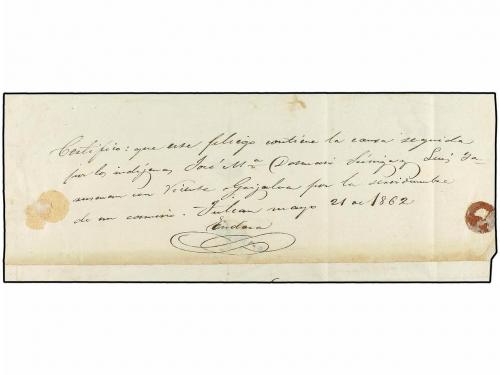 Certifico: que ese pliego contiene la causa seguida
por los indígenas José Mª y Luis
con Vicente Grijalva por la servidumbre
de un camino. - Tulcan mayo 21 de 1862
Endara